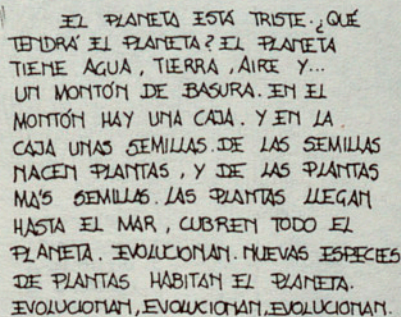 EL PLANETA ESTÁ TRISTE. ¿QUÉ
TENDRÁ EL PLANETA? EL PLANETA
TIENE AGUA, TIERRA, AIRE Y...
UN MONTÓN DE BASURA. EN EL
MONTÓN HAY UNA CAJA. Y EN LA
CAJA UNAS SEMILLAS. DE LAS SEMILLAS
NACEN PLANTAS, Y DE LAS PLANTAS
MÁS SEMILLAS. LAS PLANTAS LLEGAN
HASTA EL MAR, CUBREN TODO EL
PLANETA. EVOLUCIONAN. NUEVAS ESPECIES
DE PLANTAS HABITAN EL PLANETA.
EVOLUCIONAN, EVOLUCIONAN, EVOLUCIONAN.